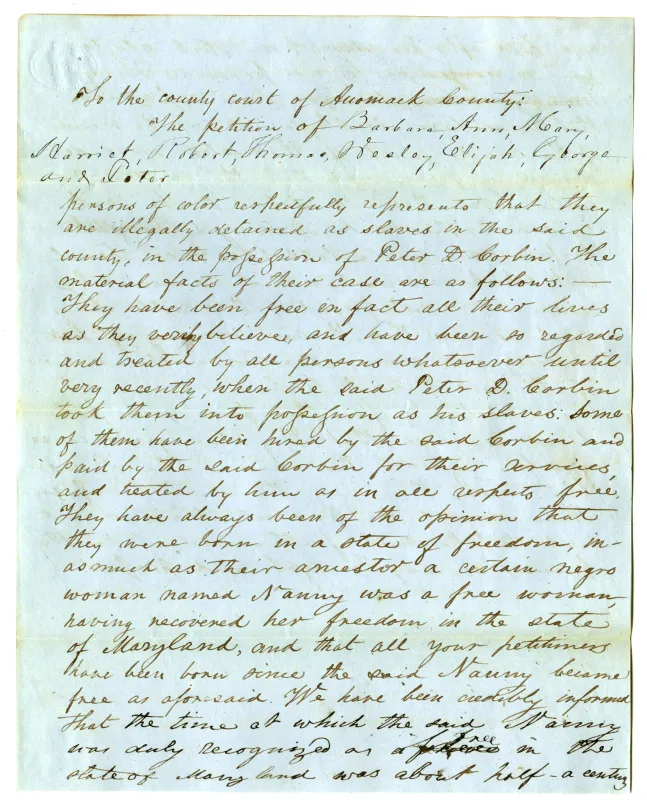 To the county court of Accomack County:
The petition of Barbara Ann, Mary,
Harriet, Robert, Thomas, Wesley, Elijah, George
and Peter
persons of color respectfully represents that they
are illegally detained as slaves in the said
county, in the possession of Peter D. Corbin. The
material facts of their case are as follows: —
They have been free in fact all their lives
as they verily believe, and have been so regarded
and treated by all persons whatsoever until
very recently, when the said Peter D. Corbin
took them into possession as his slaves: some
of them have been hired by the said Corbin and
paid by the said Corbin for their services,
and treated by him as in all respects free.
They have always been of the opinion that
they were born in a state of freedom, in-
asmuch as their ancestor a certain negro
woman named Nanny was a free woman,
having recovered her freedom in the state
of Maryland, and that all your petitioners
have been born since the said Nanny became
free as aforesaid. We have been credibly informed
that the time at which the said Nanny
was duly recognized as free in the
state of Maryland was about half-a century